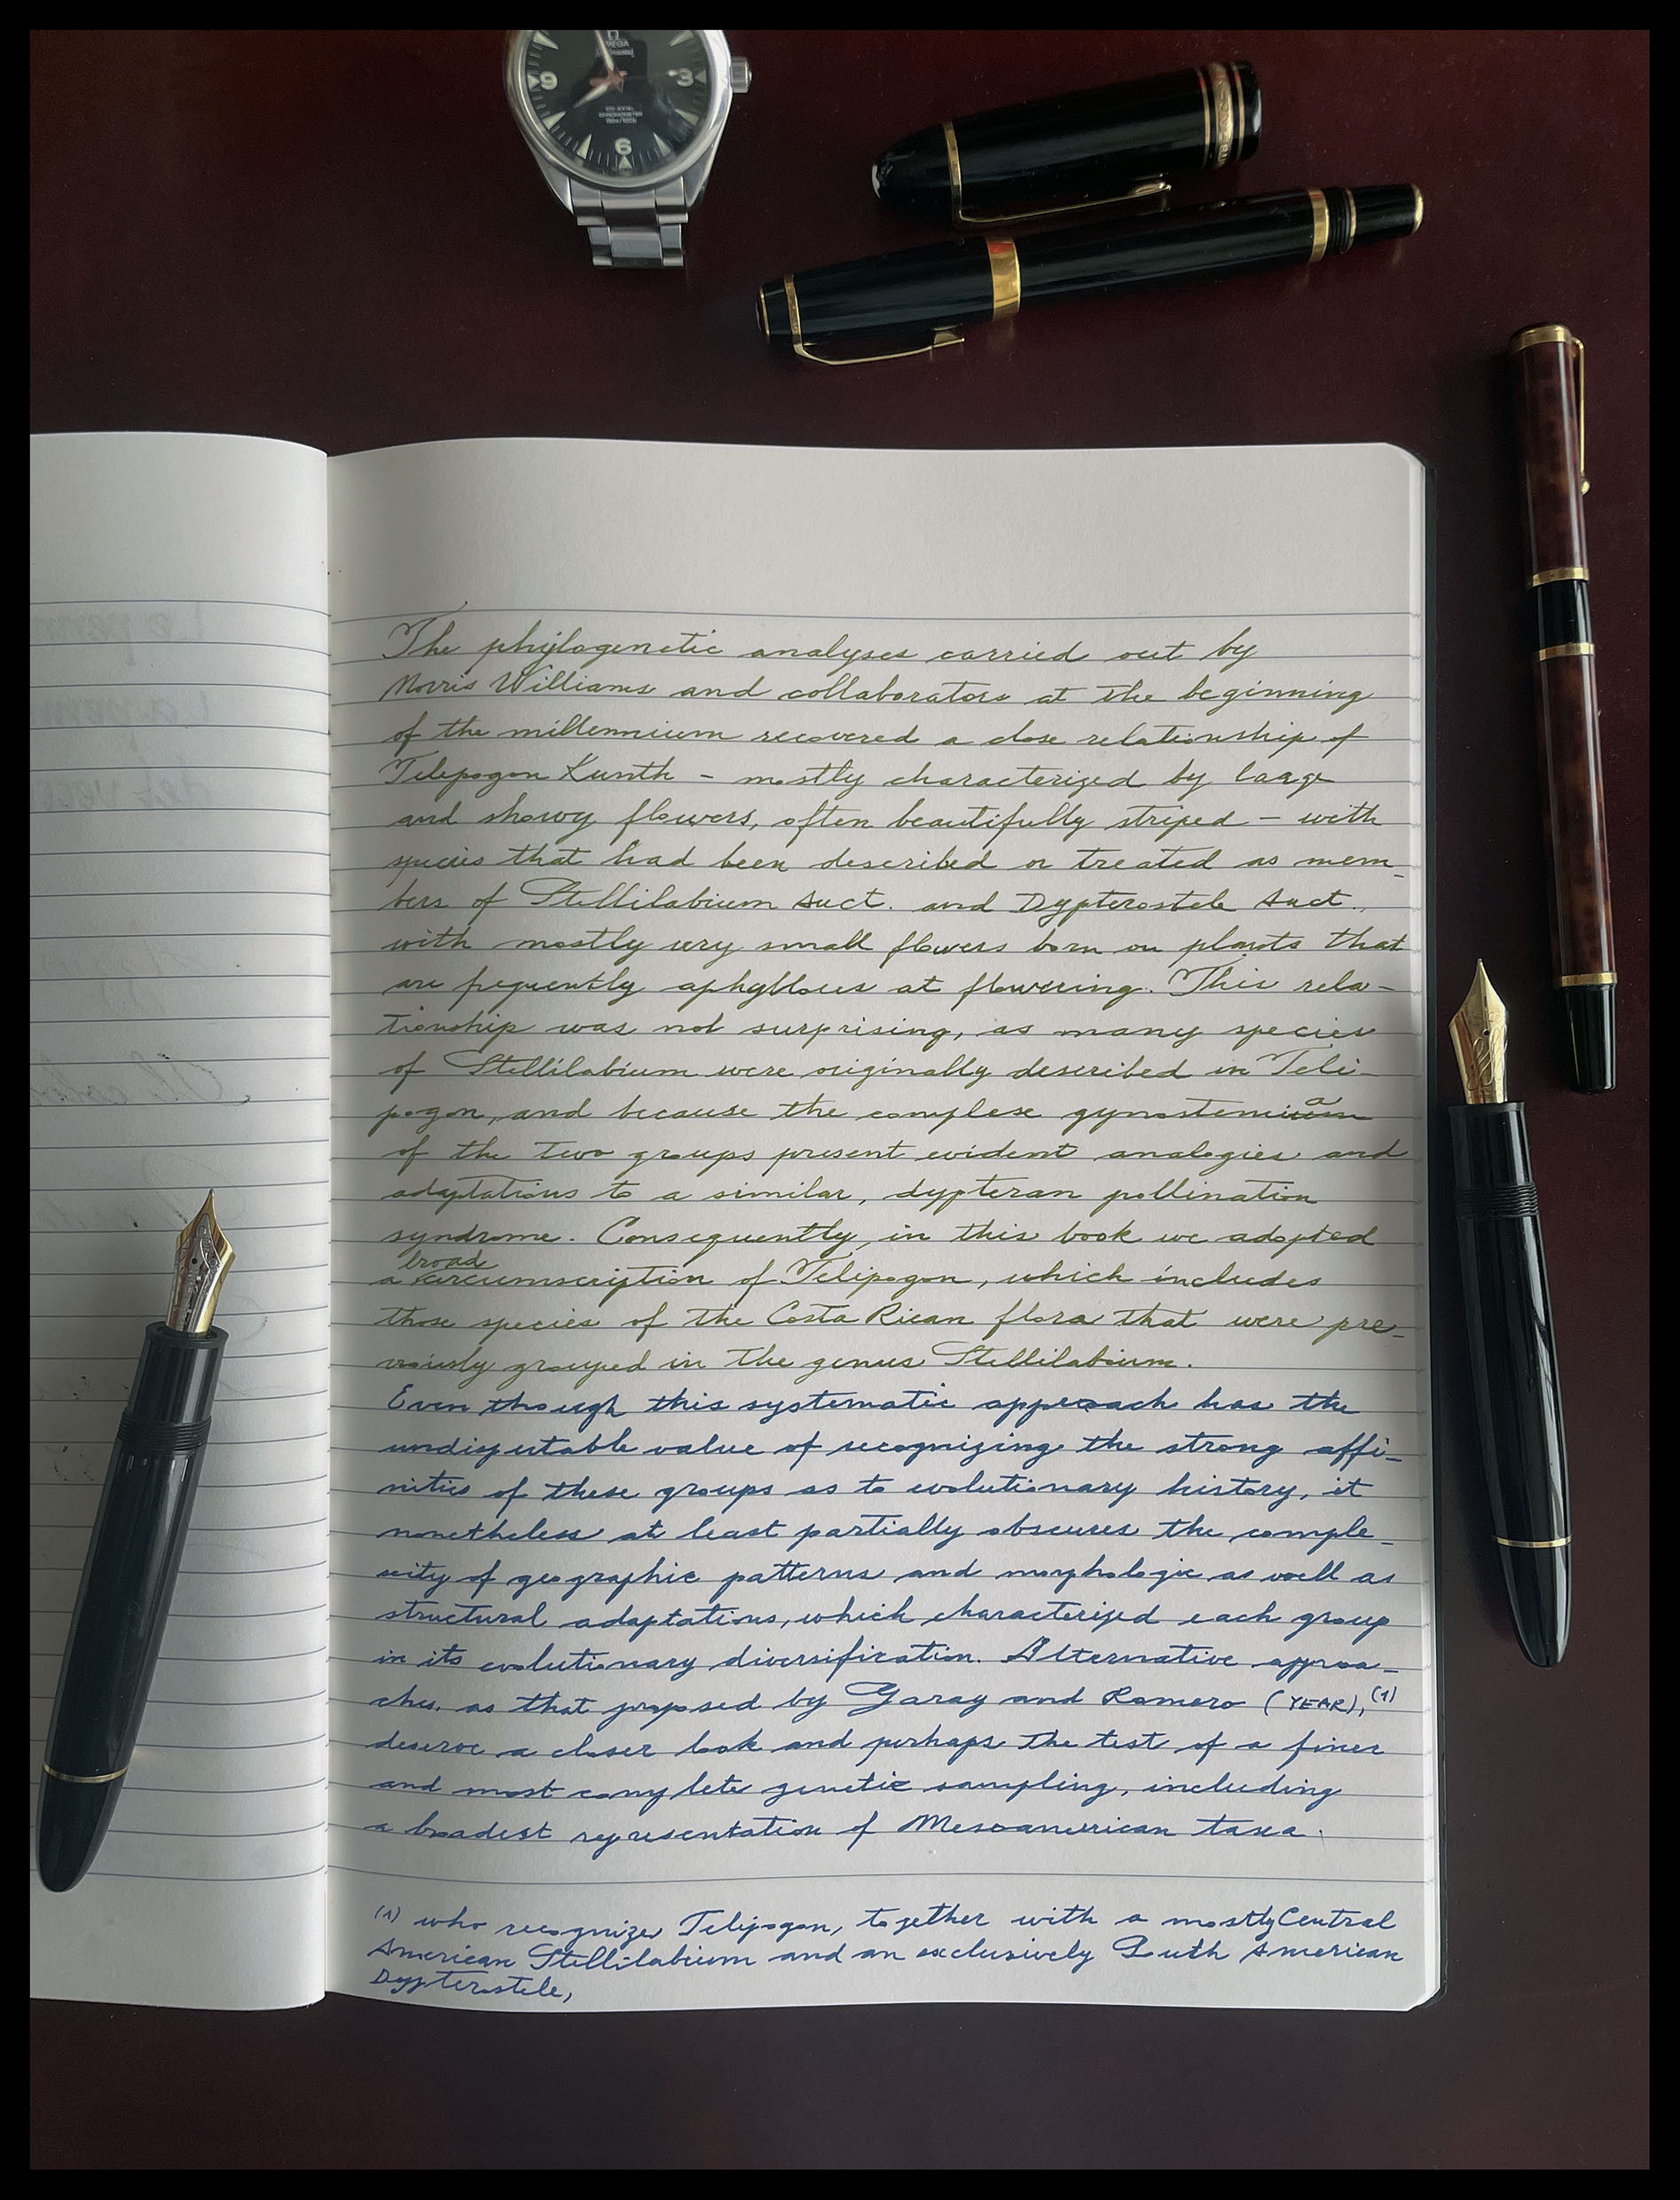 OMEGA
9
3
6
The phylogenetic analyses carried out by
Norris Williams and collaborators at the beginning
of the millennium recovered a close relationship of
Telipogon Kunth - mostly characterized by large
and showy flowers, often beautifully striped - with
species that had been described or treated as mem-
bers of Stellilabium auct. and Dypterostele auct.,
with mostly very small flowers born on plants that
are frequently aphyllous at flowering. This rela-
tionship was not surprising, as many species
of Stellilabium were originally described in Teli-
pogon, and because the complex gynostemia
of the two groups present evident analogies and
adaptations to a similar, dypteran pollination
syndrome. Consequently, in this book we adopted
a broad circumscription of Telipogon, which includes
those species of the Costa Rican flora that were pre-
viously grouped in the genus Stellilabium.
Even though this systematic approach has the
undisputable value of recognizing the strong affi-
nities of these groups as to evolutionary history, it
nonetheless at least partially obscures the comple-
xity of geographic patterns and morphologic as well as
structural adaptations, which characterized each group
in its evolutionary diversification. Alternative approa-
ches, as that proposed by Garay and Romero (YEAR),(1)
deserve a closer look and perhaps the test of a finer
and most complete genetic sampling, including
a broadest representation of Mesoamerican taxa.
(1) who recognize Telipogon, together with a mostly Central
American Stellilabium and an exclusively South American
Dypterostele,